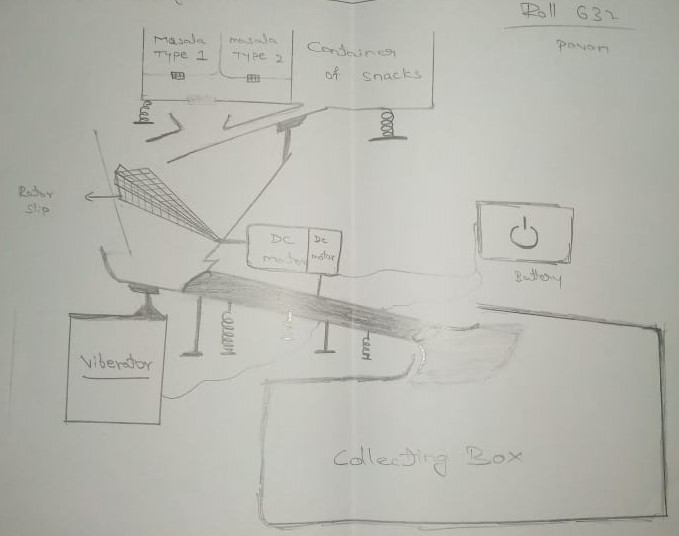 Roll 632
Pavan
Masala
TYPE 1
masala
TYPE 2
Container
of snacks
Rotor
Slip
DC
motor
DC
motor
Battery
Viberator
Collecting Box